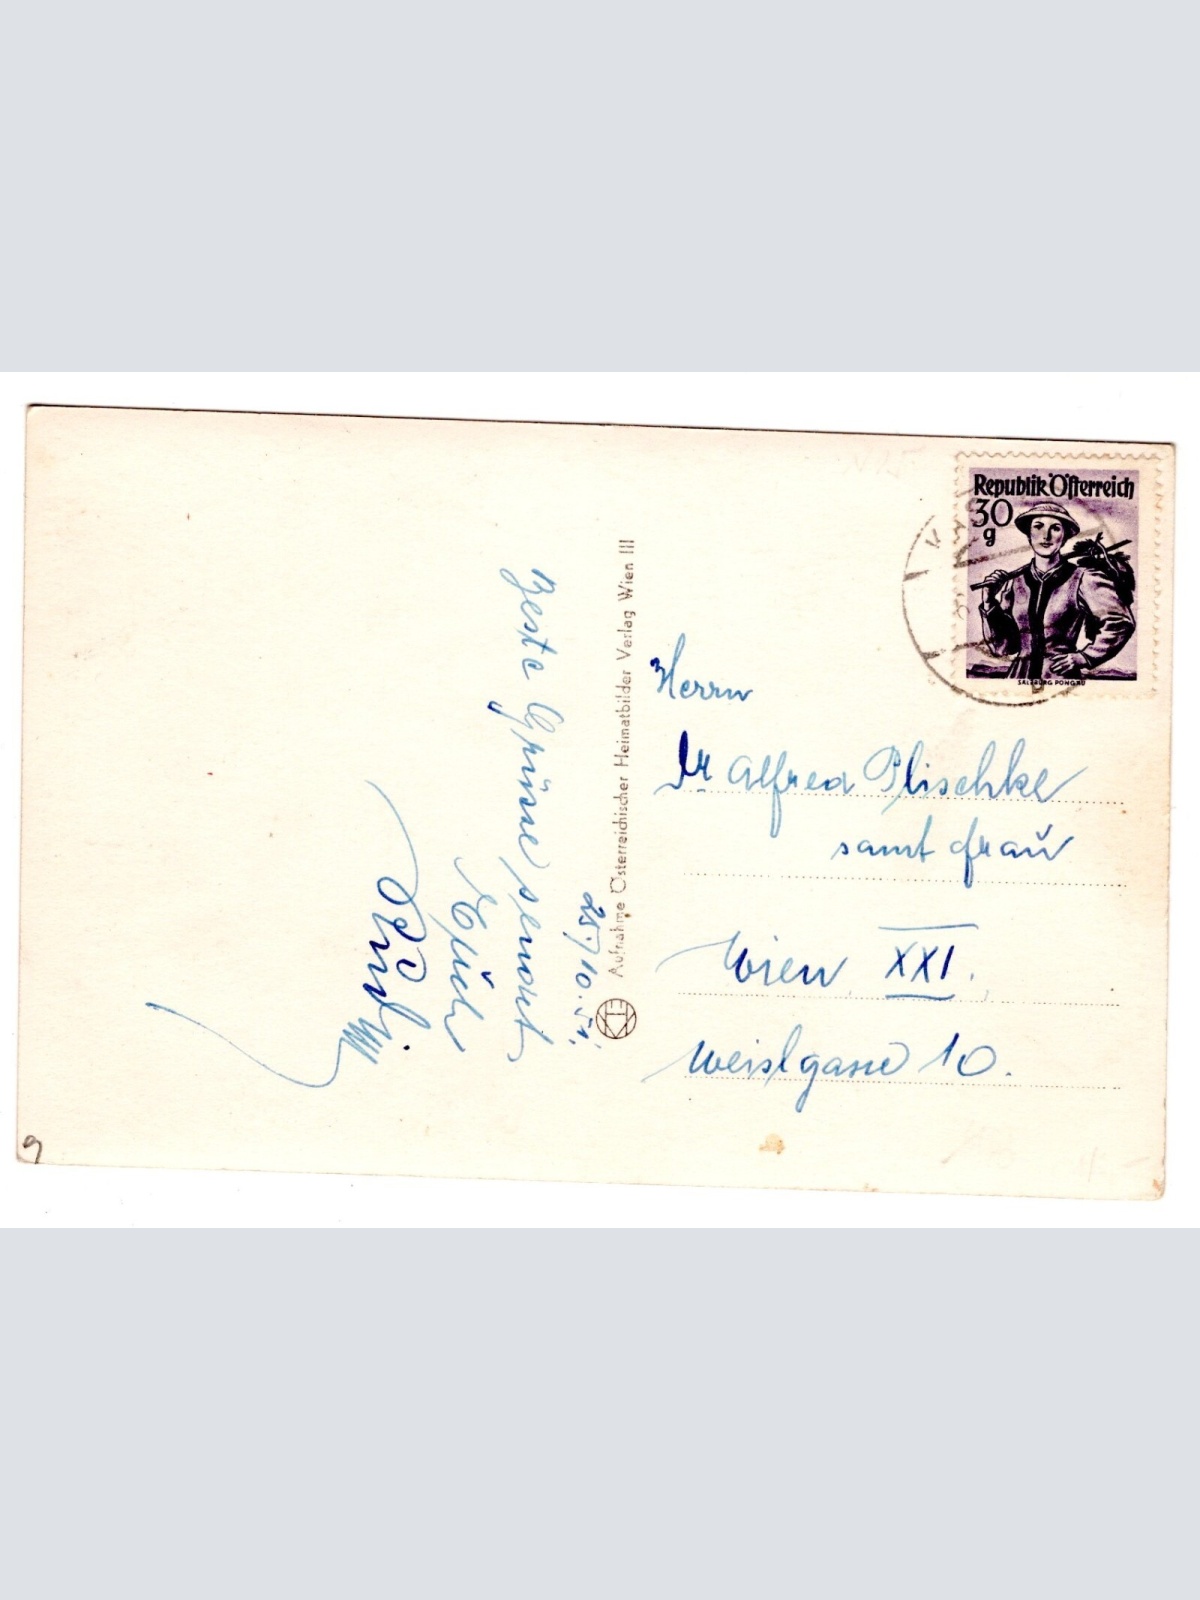 Beste Grüsse sendet
Euch
25/10.51.
Aufnahme Österreichischer Heimatbilder Verlag Wien III
Republik Österreich
30
g
SALZBURG PONGAU
Herrn
Dr Alfred Plischke
samt Frau
Wien XXI.
Weislgasse 10.
g